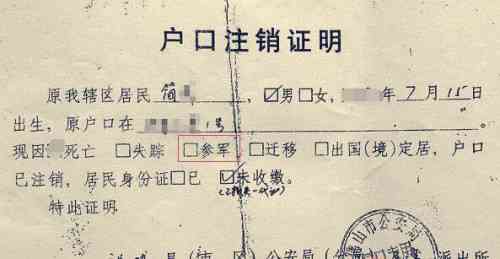 户口注销证明
原我辖区居民简 ☑男□女, 年7月15日
出生，原户口在 号
现因 死亡 □失踪 □参军 □迁移 □出国(境)定居，户口
已注销，居民身份证□已 ☑未收缴。
特此证明
山市公安局
县(市、区)公安局 派出所